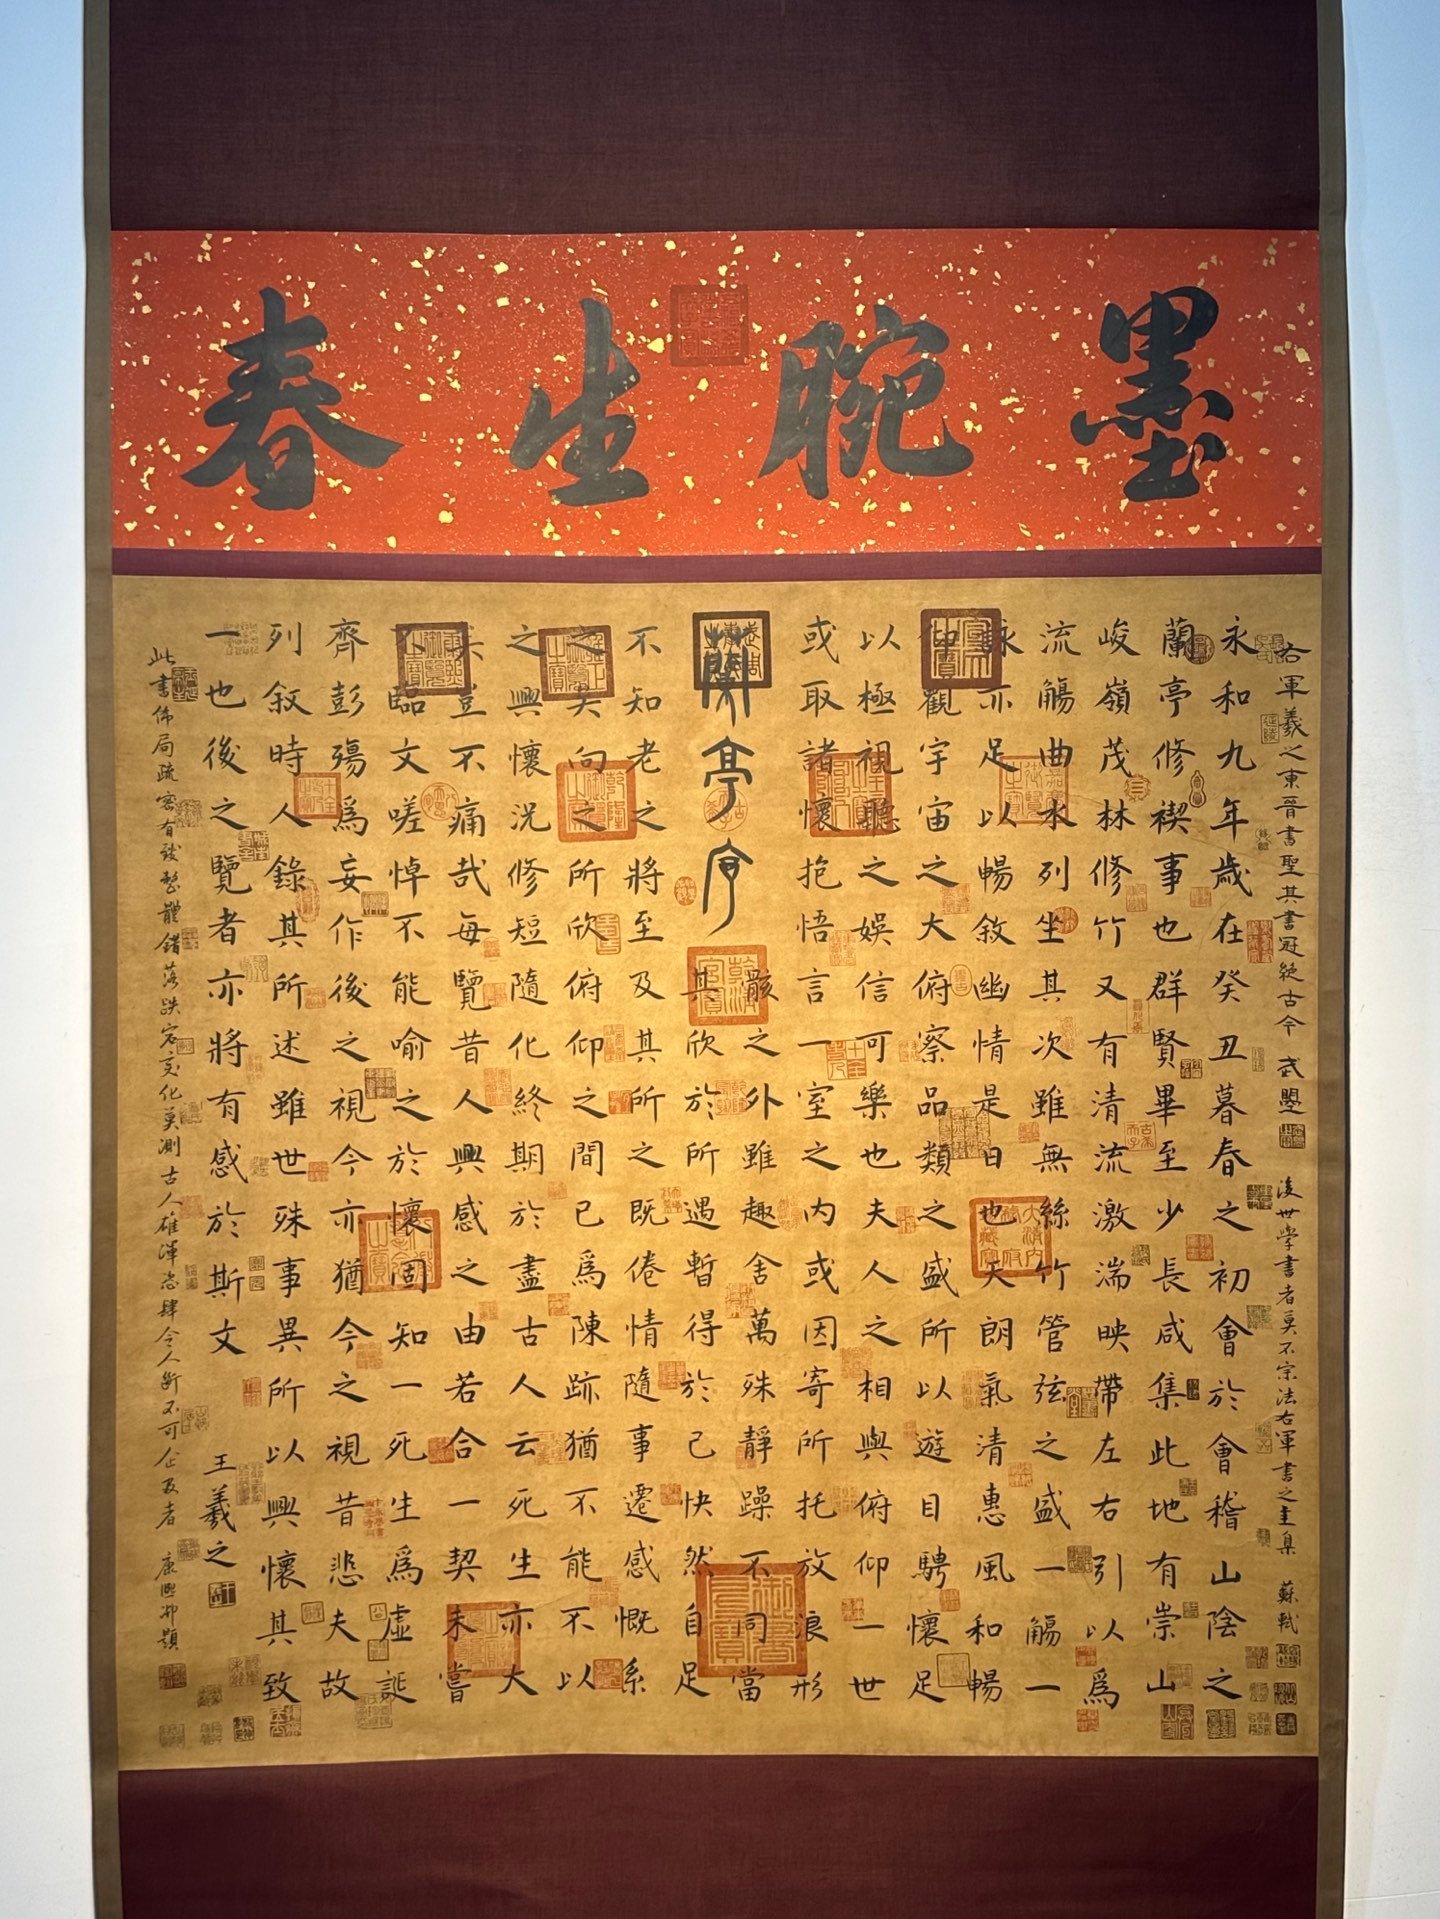 墨腕生春
右軍羲之東晉書聖其書冠絕古今 武曌 後世學書者莫不宗法右軍書之圭臬 蘇軾
永和九年歲在癸丑暮春之初會於會稽山陰之
蘭亭修禊事也群賢畢至少長咸集此地有崇山
峻嶺茂林修竹又有清流激湍映帶左右引以為
流觴曲水列坐其次雖無絲竹管弦之盛一觴一
詠亦足以暢敘幽情是日也天朗氣清惠風和暢
仰觀宇宙之大俯察品類之盛所以遊目騁懷足
以極視聽之娛信可樂也夫人之相與俯仰一世
或取諸懷抱悟言一室之內或因寄所托放浪形
蘭亭序
骸之外雖趣舍萬殊靜躁不同當
其欣於所遇暫得於己快然自足
不知老之將至及其所之既倦情隨事遷感慨系
之矣向之所欣俯仰之間已為陳跡猶不能不以
之興懷況修短隨化終期於盡古人云死生亦大
矣豈不痛哉每覽昔人興感之由若合一契未嘗
不臨文嗟悼不能喻之於懷固知一死生為虛誕
齊彭殤為妄作後之視今亦猶今之視昔悲夫故
列敘時人錄其所述雖世殊事異所以興懷其致
一也後之覽者亦將有感於斯文 王羲之
此書佈局疏密有致整體錯落跌宕變化莫測古人雄渾恣肆今人斷不可企及者 康熙御題